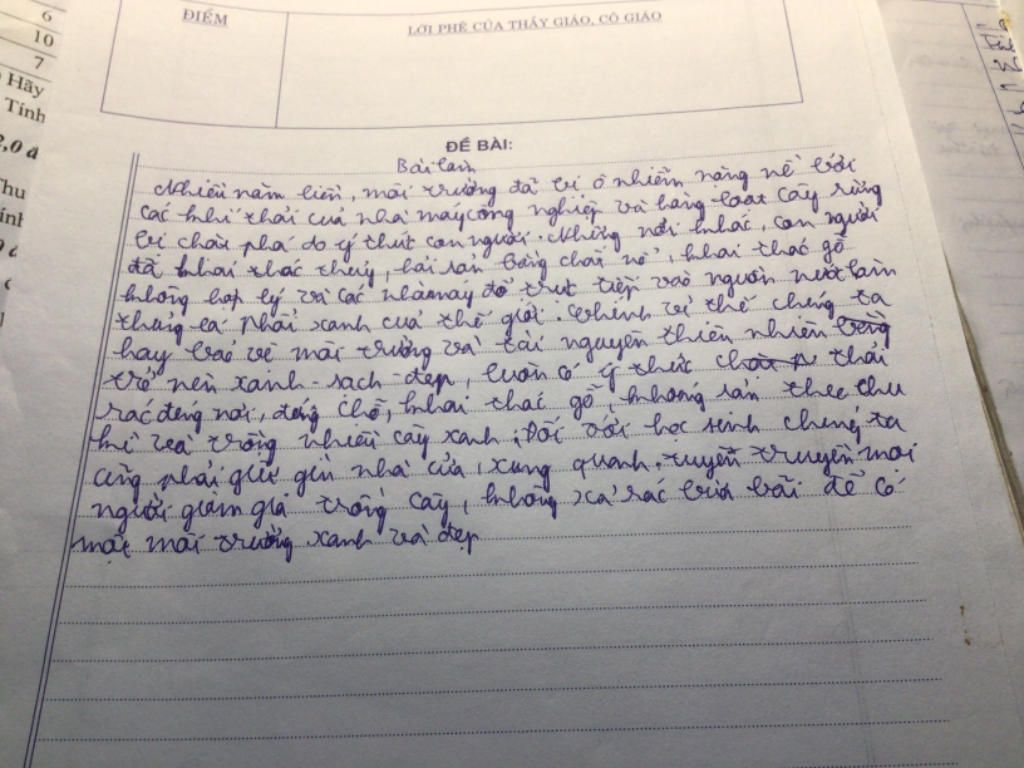 6
10
7
Hãy
Tính
2,0 đ
Thu
ĐIỂM
LỜI PHÊ CỦA THẦY GIÁO, CÔ GIÁO
ĐỀ BÀI:
Bài làm
Nhiều năm liền, môi trường đã bị ô nhiễm nặng nề bởi
các khí thải của nhà máy công nghiệp và hàng loạt cây rừng
bị chặt phá do ý thức con người. Những nơi khác, con người
đã khai thác thuỷ, hải sản bằng chất nổ, khai thác gỗ
không hợp lý và các nhà máy đổ trực tiếp vào nguồn nước làm
thủng lá phổi xanh của thế giới. Chính vì thế chúng ta
hãy bảo vệ môi trường và tài nguyên thiên nhiên
trở nên xanh - sạch - đẹp, luôn có ý thức thải
rác đúng nơi, đúng chỗ, khai thác gỗ, khoáng sản theo chu
kì và trồng nhiều cây xanh. Đối với học sinh chúng ta
cũng phải giữ gìn nhà cửa, xung quanh, tuyên truyền mọi
người giảm giá trồng cây, không xả rác bừa bãi để có
một môi trường xanh và đẹp